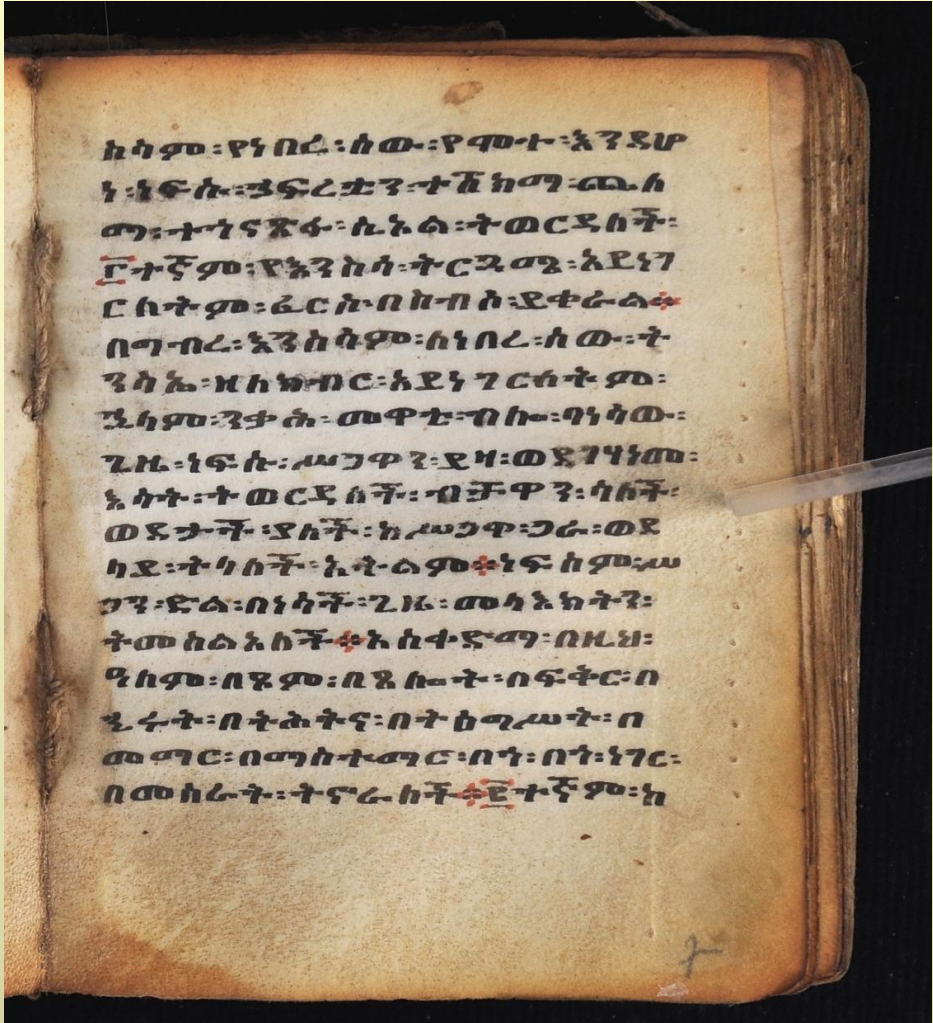 ሰላም፡የነበረ፡ሰው፡የሞተ፡እንደሆ
ነ፡ነፍሱ፡ኃፍረቷን፡ተሸክማ፡ጨለ
ማ፡ተጎናጽፋ፡ሲኦል፡ትወርዳለች፡
፫ተኛም፡የእንስሳ፡ትርጓሜ፡አይነገ
ርለትም፡ፈርሶ፡በስብሶ፡ይቀራል፨
በግብረ፡እንስሳም፡ለነበረ፡ሰው፡ት
ንሳኤ፡ዘለክብር፡አይነገርለትም፡
ኋላም፡ንቃሕ፡መዋቲ፡ብሎ፡ባነሳው፡
ጊዜ፡ነፍሱ፡ሥጋዋን፡ይዛ፡ወደገሃነመ፡
እሳት፡ተወርዳለች፡ብቻዋን፡ሳለች፡
ወደታች፡ያለች፡ከሥጋዋ፡ጋራ፡ወደ
ላይ፡ትላለች፡አትልም፨ነፍስም፡ሥ
ጋን፡ድል፡በነሳች፡ጊዜ፡መላእክትን፡
ትመስልአለች፨አስቀድማ፡በዚህ፡
ዓለም፡በጾም፡በጸሎት፡በፍቅር፡በ
ኂሩት፡በትሕትና፡በትዕግሥት፡በ
መማር፡በማስተማር፡በጎ፡በጎ፡ነገር፡
በመስራት፡ትኖራለች፨፪ተኛም፡ከ